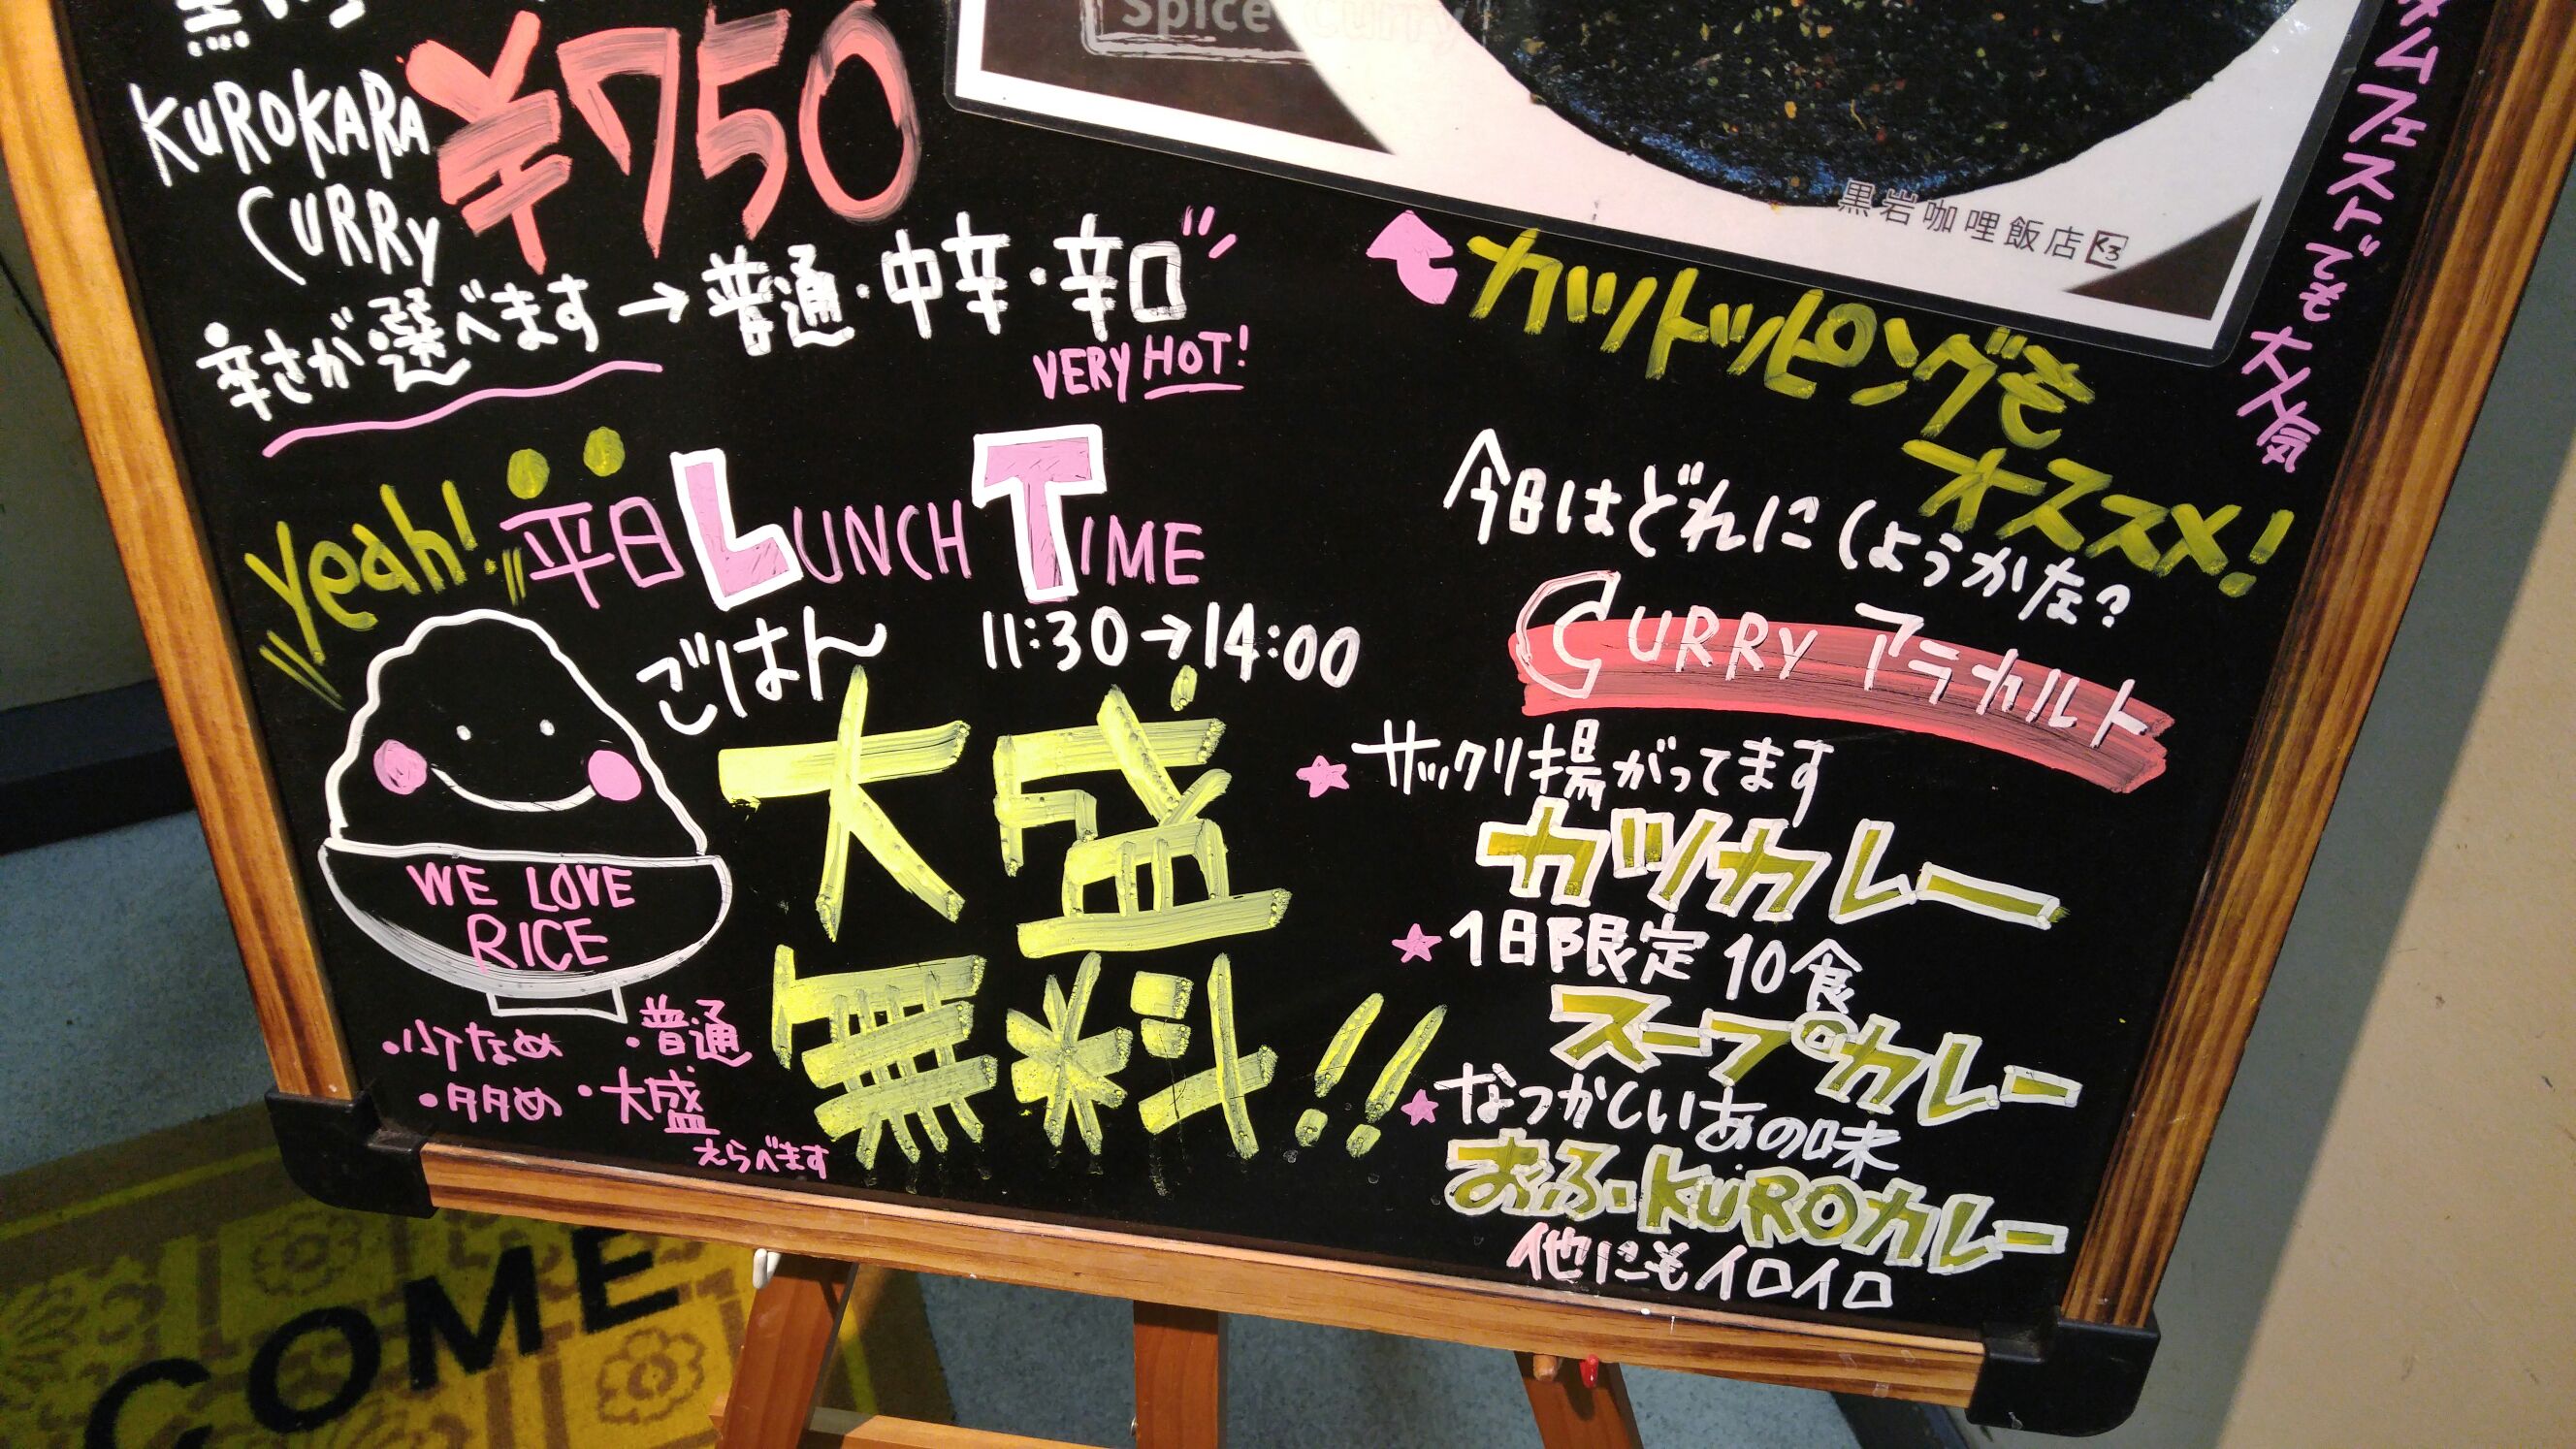 KUROKARA
CURRY
¥750
辛さが選べます→普通・中辛・辛口
VERY HOT!
Spice Curry
黒岩咖哩飯店
ムフェストでも大人気
カツトッピングを
オススメ!
yeah! 平日 LUNCH TIME
ごはん 11:30→14:00
大盛
無料!!
WE LOVE
RICE
・少なめ ・普通
・多め ・大盛
えらべます
今日はどれにしようかな?
CURRY アラカルト
★サックリ揚がってます
カツカレー
★1日限定10食
スープカレー
★なつかしいあの味
おふ・KUROカレー
他にもイロイロ
COME